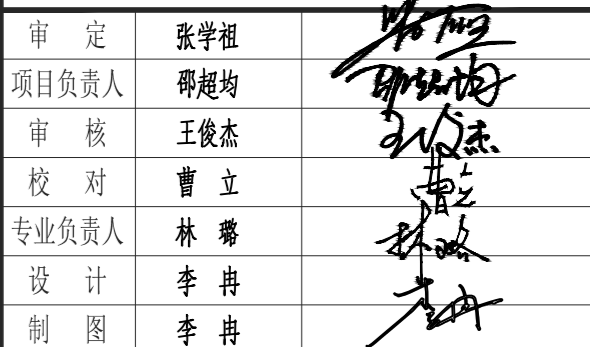 审 定 张学祖
项目负责人 邵超均 邵超均
审 核 王俊杰 王俊杰
校 对 曹 立 曹立
专业负责人 林 璐 林璐
设 计 李 冉 李冉
制 图 李 冉